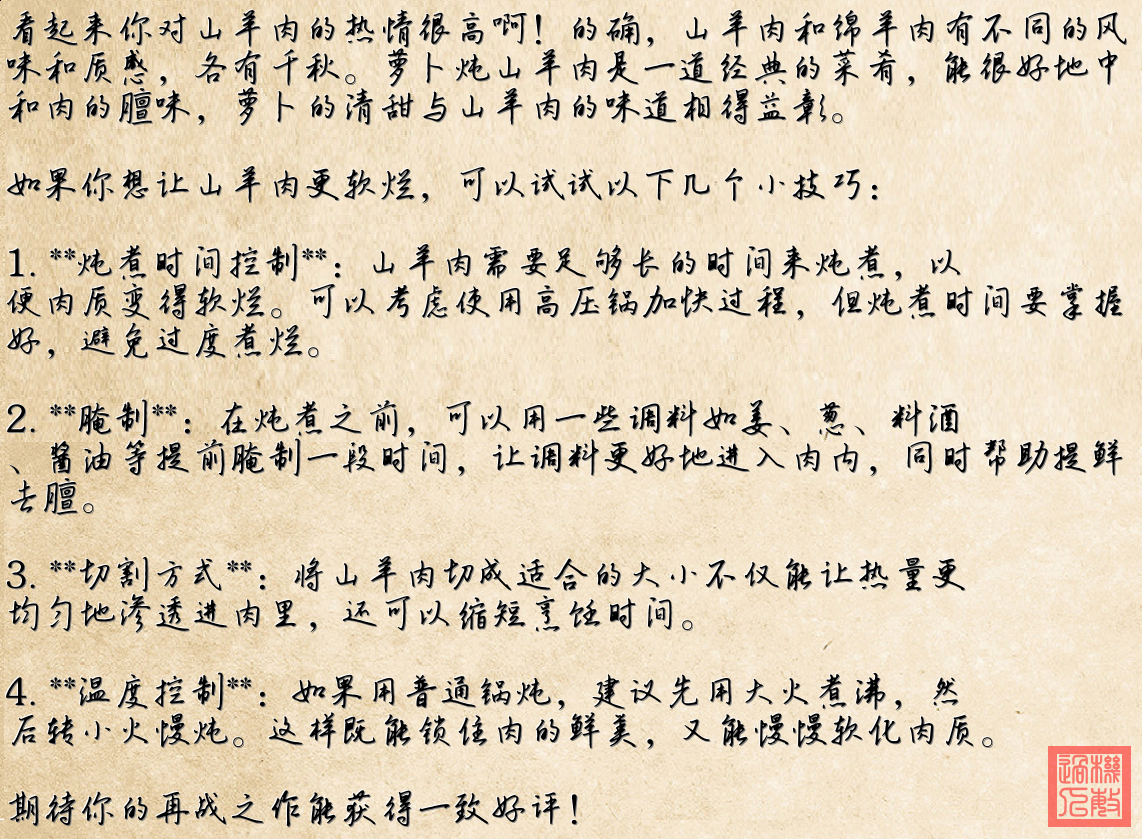 看起来你对山羊肉的热情很高啊！的确，山羊肉和绵羊肉有不同的风
味和质感，各有千秋。萝卜炖山羊肉是一道经典的菜肴，能很好地中
和肉的膻味，萝卜的清甜与山羊肉的味道相得益彰。
如果你想让山羊肉更软烂，可以试试以下几个小技巧：
1. **炖煮时间控制**：山羊肉需要足够长的时间来炖煮，以
便肉质变得软烂。可以考虑使用高压锅加快过程，但炖煮时间要掌握
好，避免过度煮烂。
2. **腌制**：在炖煮之前，可以用一些调料如姜、葱、料酒
、酱油等提前腌制一段时间，让调料更好地进入肉内，同时帮助提鲜
去膻。
3. **切割方式**：将山羊肉切成适合的大小不仅能让热量更
均匀地渗透进肉里，还可以缩短烹饪时间。
4. **温度控制**：如果用普通锅炖，建议先用大火煮沸，然
后转小火慢炖。这样既能锁住肉的鲜美，又能慢慢软化肉质。
期待你的再战之作能获得一致好评！